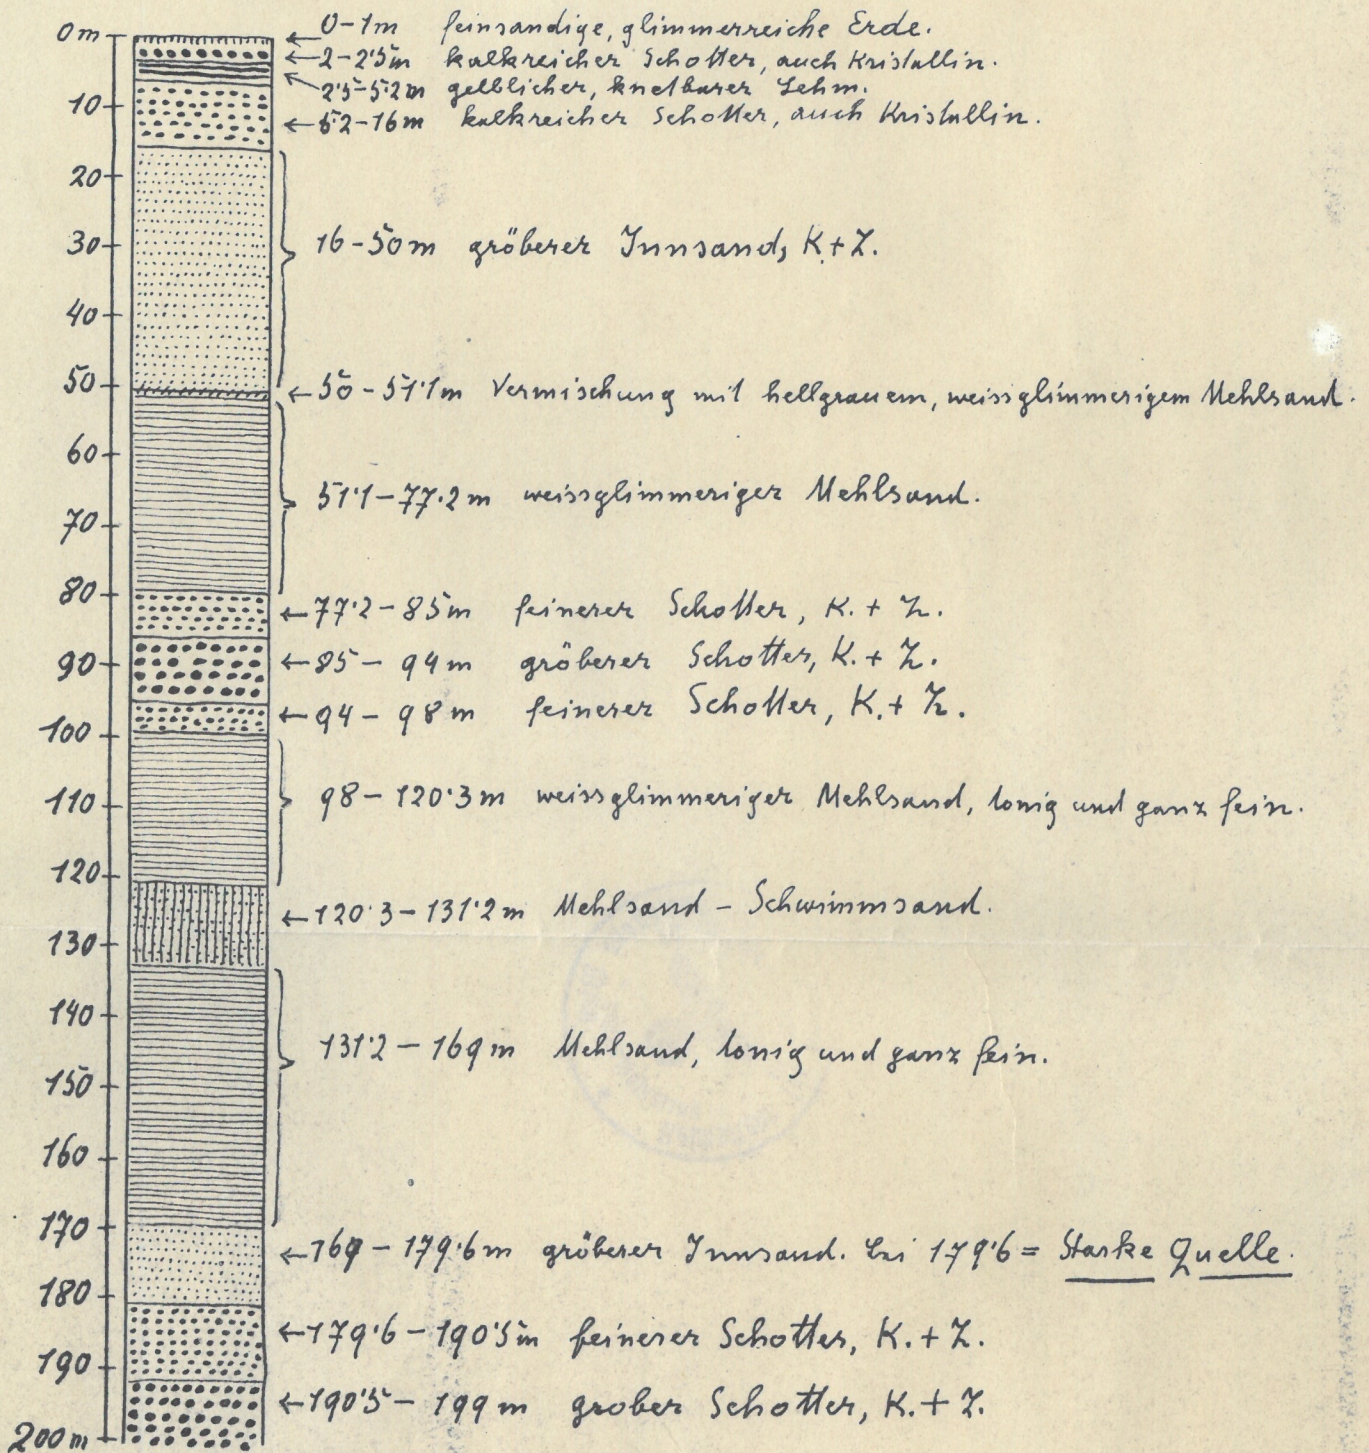 0 m
0-1m feinsandige, glimmerreiche Erde.
2-2'5m kalkreicher Schotter, auch Kristallin.
2'5-5'2m gelblicher, knetbarer Lehm.
10
5'2-16m kalkreicher Schotter, auch Kristallin.
20
30
16-50m gröberer Innsand, K+Z.
40
50
50-51'1m Vermischung mit hellgrauem, weissglimmerigem Mehlsand.
60
51'1-77.2m weissglimmeriger Mehlsand.
70
80
77'2-85m feinerer Schotter, K. + Z.
90
85-94m gröberer Schotter, K. + Z.
94-98m feinerer Schotter, K. + Z.
100
98-120'3m weissglimmeriger Mehlsand, tonig und ganz fein.
110
120
120'3-131'2m Mehlsand - Schwimmsand.
130
140
131'2-169m Mehlsand, tonig und ganz fein.
150
160
170
169-179'6m gröberer Innsand. bei 179'6 = Starke Quelle.
180
179'6-190'5m feinerer Schotter, K. + Z.
190
190'5-199m grober Schotter, K. + Z.
200m